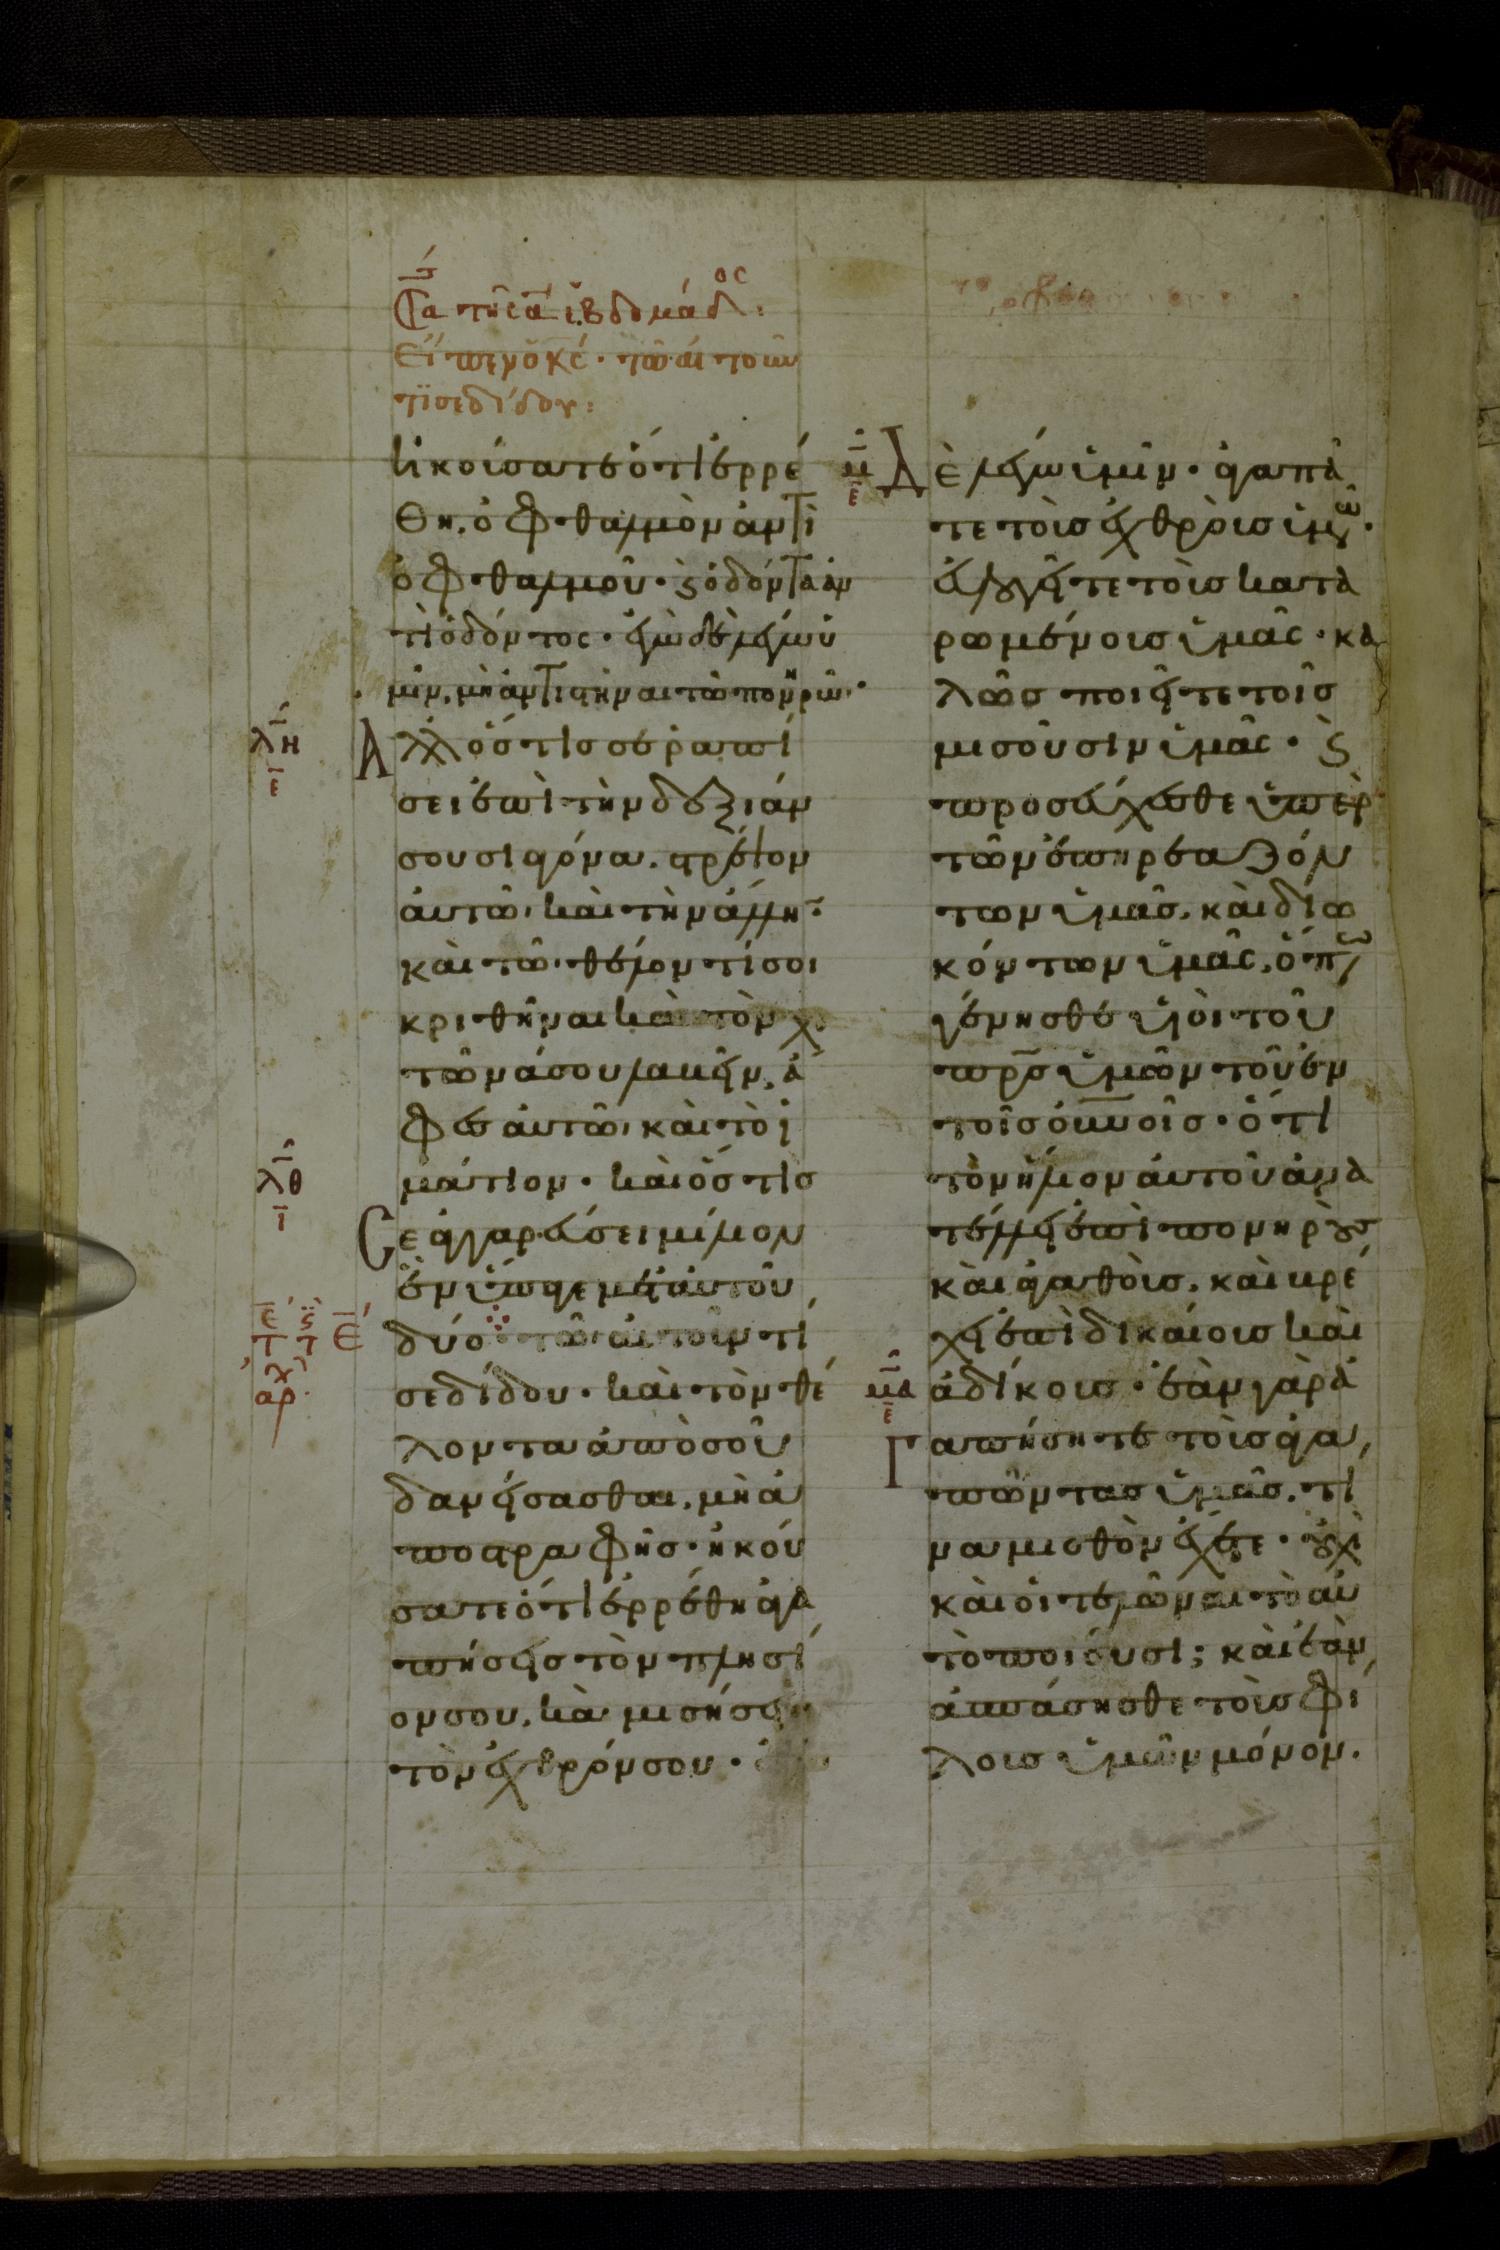 Σα τῆς α ἑβδομάδος:
Εἶπεν ὁ κς· τῶ αἰτοῦν
τί σε δίδου:
λη
ε
λθ
ι
ε ς
τ τ
αρχ
Ε
ἠκοίσατε ὅτι ἐρρέ
θη, ὀφθαλμὸν ἀντὶ
ὀφθαλμοῦ· ϗ ὀδόντα ἀν
τὶ ὀδόντος· ἐγὼ δὲ λέγω ὑ
μῖν, μὴ ἀντιστῆναι τῶ πονηρῶ·
Ἀλλ ὅστις σε ῥαπί
σει ἐπὶ τὴν δεξιάν
σου σιαγόνα, στρέψον
αὐτῶ, καὶ τὴν ἄλλην·
καὶ τῶ θέλοντί σοι
κριθῆναι καὶ τὸν χι
τῶνά σου λαβεῖν, ἄ
φες αὐτῶ, καὶ τὸ ἱ
μάτιον· καὶ ὅστις
Σε ἀγγαρεύσει μίλιον
ἓν ὕπαγε μετ αὐτοῦ
δύο τῶ αἰτοῦντί
σε δίδου· καὶ τὸν θέ
λοντα ἀπὸ σοῦ
δανείσασθαι, μὴ ἀ
ποστραφῆς· ἠκού
σατε ὅτι ἐρρέθη ἀγα
πήσεις τὸν πλησί
ον σου, καὶ μισήσεις
τὸν ἐχθρόν σου· ἐγὼ
μ
ε
Δὲ λέγω ὑμῖν· ἀγαπᾶ
τε τοὺς ἐχθροὺς ὑμῶν·
εὐλογεῖτε τοὺς κατα
ρωμένους ὑμᾶς· κα
λῶς ποιεῖτε τοῖς
μισοῦσιν ὑμᾶς· ϗ
προσεύχεσθε ὑπὲρ
τῶν ἐπηρεαζόν
των ὑμᾶς, καὶ διω
κόντων ὑμᾶς, ὅπως
γένησθε υἱοὶ τοῦ
πρς ὑμῶν τοῦ ἐν
τοῖς οὐνοῖς· ὅτι
τὸν ἥλιον αὐτοῦ ἀνα
τέλλει ἐπὶ πονηροὺς
καὶ ἀγαθοὺς, καὶ βρέ
χει ἐπὶ δικαίους καὶ
μα
ε
ἀδίκους· ἐὰν γὰρ ἀ
Γαπήσητε τοὺς ἀγα
πῶντας ὑμᾶς, τί
να μισθὸν ἔχετε· οὐχὶ
καὶ οἱ τελῶναι τὸ αὐ
τὸ ποιοῦσι; καὶ ἐὰν
ἀσπάσησθε τοὺς φί
λους ὑμῶν μόνον.